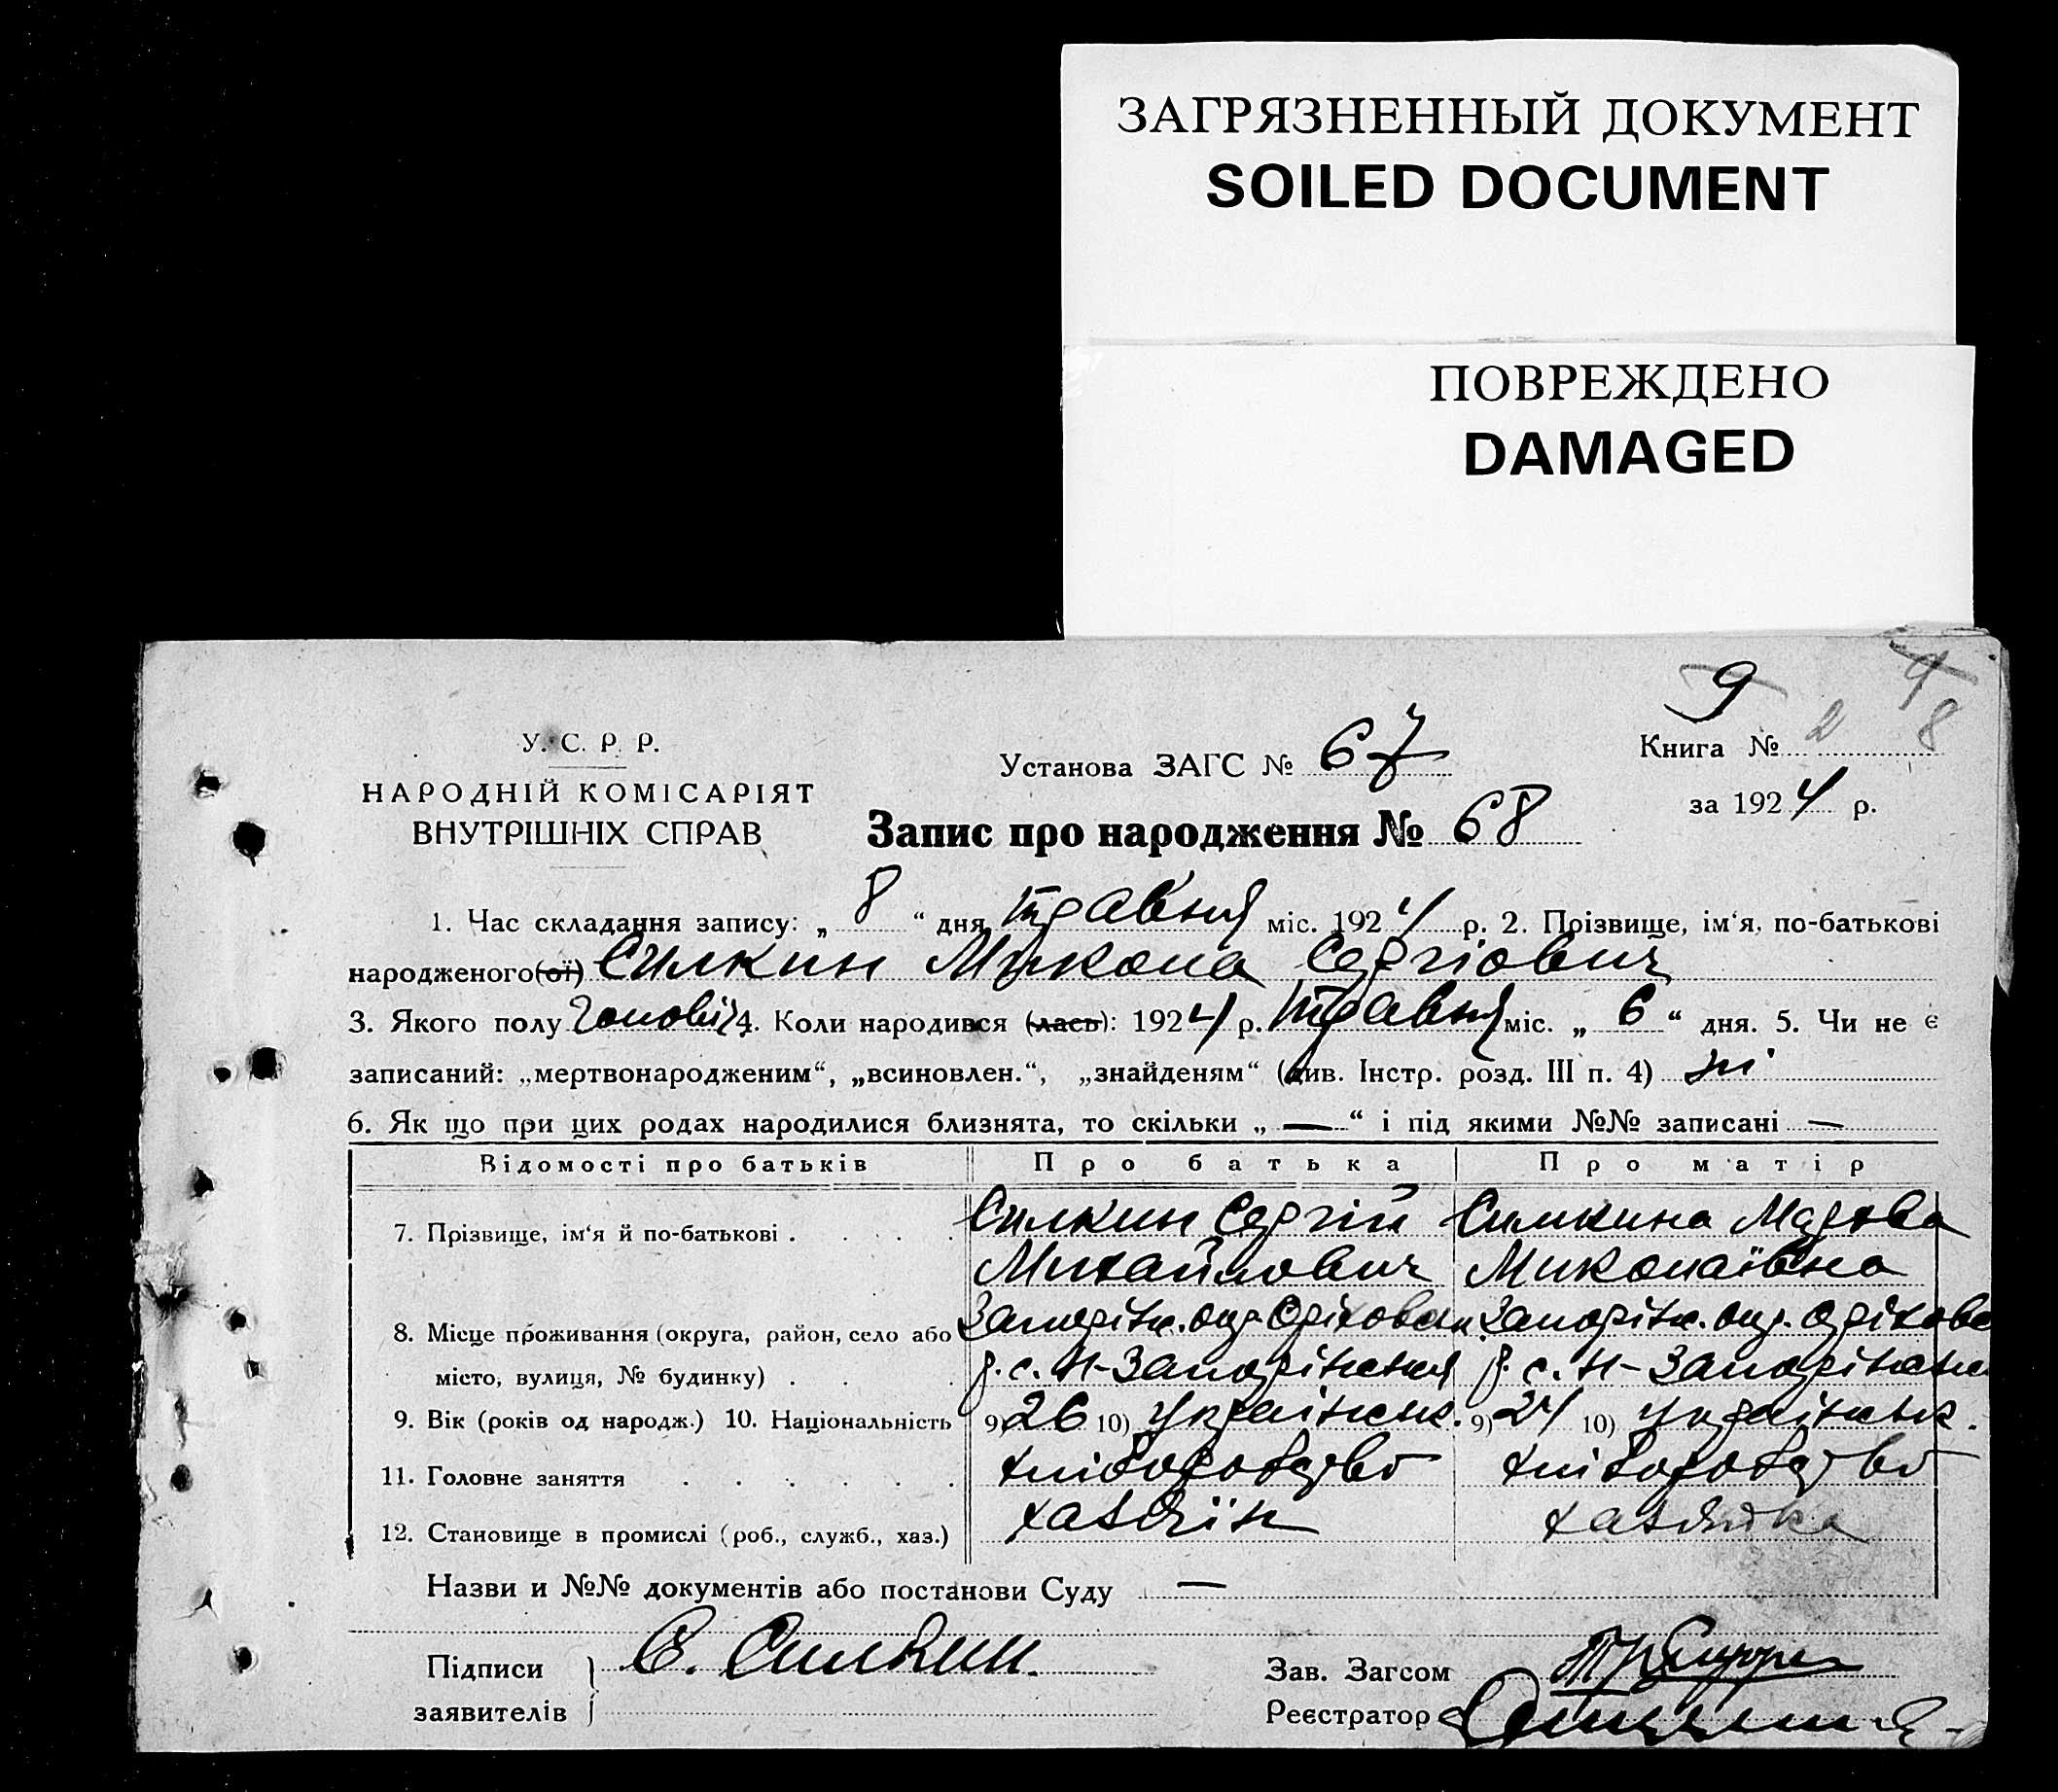 ЗАГРЯЗНЕННЫЙ ДОКУМЕНТ
SOILED DOCUMENT
ПОВРЕЖДЕНО
DAMAGED
9 4
8
У. С. Р. Р.
НАРОДНІЙ КОМІСАРІЯТ
ВНУТРІШНІХ СПРАВ
Установа ЗАГС № 67
Книга № 2
за 1924 р.
Запис про народження № 68
1. Час складання запису: „ 8 “ дня травня міс. 1924 р. 2. Прізвище, ім‘я, по-батькові
народженого(ої) Силкин Микола Сергіович
3. Якого полу чоловіч 4. Коли народився (лась): 1924 р. травня міс. „ 6 “ дня. 5. Чи не є
записаний: „мертвонародженим“, „всиновлен.“, „знайденям“ (див. Інстр. розд. III п. 4) ні
6. Як що при цих родах народилися близнята, то скільки „ — “ і під якими №№ записані —
Відомості про батьків Про батька Про матір
7. Прізвище, ім‘я й по-батькові . . . . . Силкин Сергій Силкина
Михайлович Миколаївна
8. Місце проживання (округа, район, село або Запоріжс. окр. Оріховськ Запоріжс. окр. Оріховс
місто, вулиця, № будинку) . . . р. с. Н-Запоріжжя р. с. Н-Запоріжжя
9. Вік (років од народж.) 10. Національність 9) 26 10) українськ. 9) 24 10) українськ.
11. Головне заняття . . . . . . хліборобство хліборобство
12. Становище в промислі (роб., служб., хаз.) хазяїн хазяйка
Назви и №№ документів або постанови Суду —
Підписи С. Силкин.
заявителів
Зав. Загсом
Реєстратор